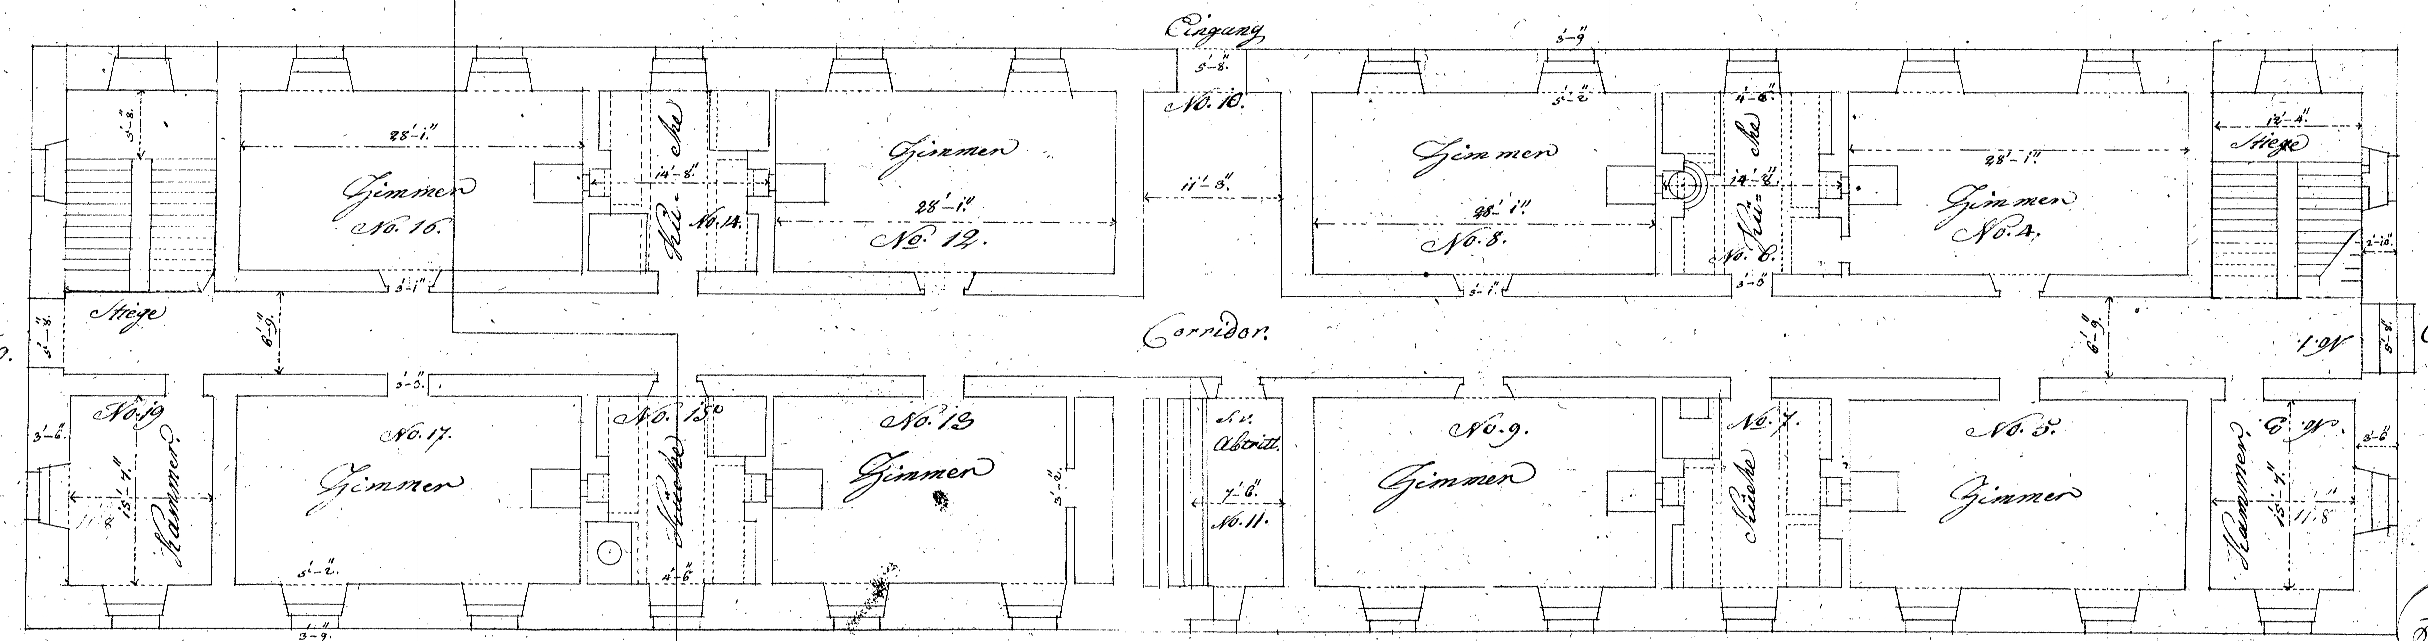 Eingang
3'-9"
5'-8"
No. 10.
5'-2"
4'-6"
5'-8"
28'-1"
Zimmer
No. 16.
14'-8"
Kü-che
No. 14.
Zimmer
28'-1"
No. 12.
11'-3"
Zimmer
28'-1"
No. 8.
14'-8"
Kü-che
No. 6.
28'-1"
Zimmer
No. 4.
12'-4"
Stiege
2'-10"
3'-1"
3'-1"
3'-5"
Stiege
5'-8"
6'-9"
Corridor.
6'-9"
No. 1.
5'-8"
3'-5"
No. 19
3'-6"
15'-7"
11'-8"
Kammer.
No. 17.
Zimmer
5'-2"
3'-9"
No. 15
Küche
4'-6"
No. 13
Zimmer
5'-2"
S.v.
Abtritt.
7'-6"
No. 11.
No. 9.
Zimmer
No. 7.
Küche
No. 5.
Zimmer
No. 3.
3'-6"
Kammer.
15'-7"
11'-8"